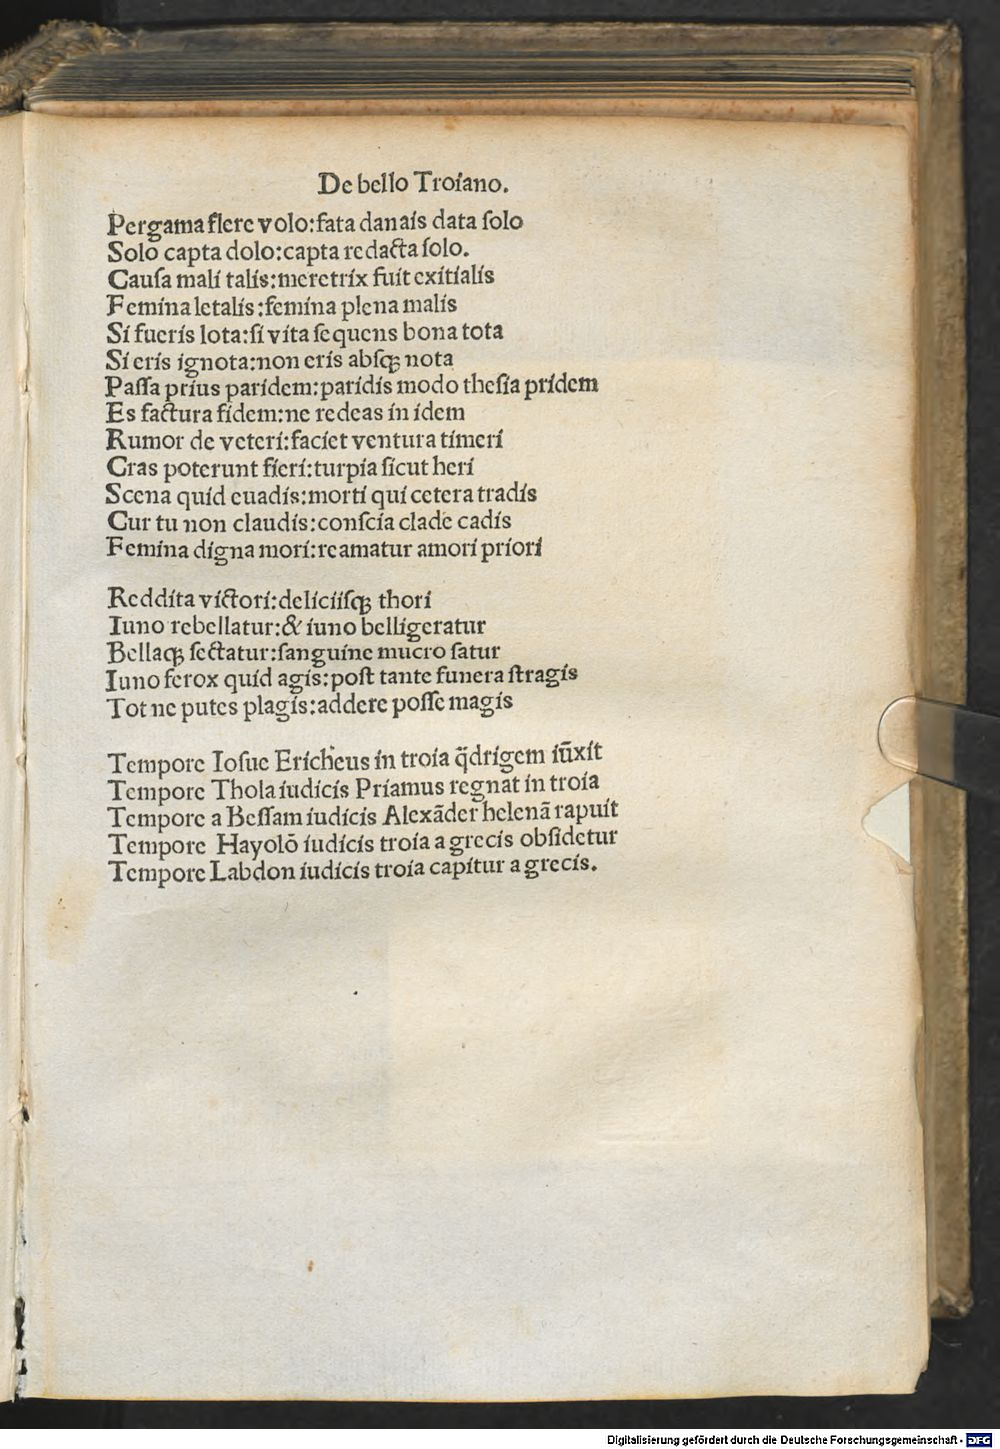 De bello Troiano.
Pergama flere volo:fata danais data ſolo
Solo capta dolo:capta redacta ſolo.
Cauſa mali talis:meretrix fuit exitialis
Femina letalis:femina plena malis
Si fueris lota:ſi vita ſequens bona tota
Si eris ignota:non eris abſqꝫ nota
Paſſa prius paridem:paridis modo theſia pridem
Es factura fidem:ne redeas in idem
Rumor de veteri:faciet ventura timeri
Cras poterunt fieri:turpia ſicut heri
Scena quid euadis:morti qui cetera tradis
Cur tu non claudis:conſcia clade cadis
Femina digna mori:reamatur amori priori
Reddita victori:deliciiſqꝫ thori
Iuno rebellatur:& iuno belligeratur
Bellaqꝫ ſectatur:ſanguine mucro ſatur
Iuno ferox quid agis:poſt tante funera ſtragis
Tot ne putes plagis:addere poſſe magis
Tempore Ioſue Ericheus in troia q̈drigem iūxit
Tempore Thola iudicis Priamus regnat in troia
Tempore a Beſſam iudicis Alexãder helenã rapuit
Tempore Hayolõ iudicis troia a grecis obſidetur
Tempore Labdon iudicis troia capitur a grecis.
Digitalisierung gefördert durch die Deutsche Forschungsgemeinschaft - DFG